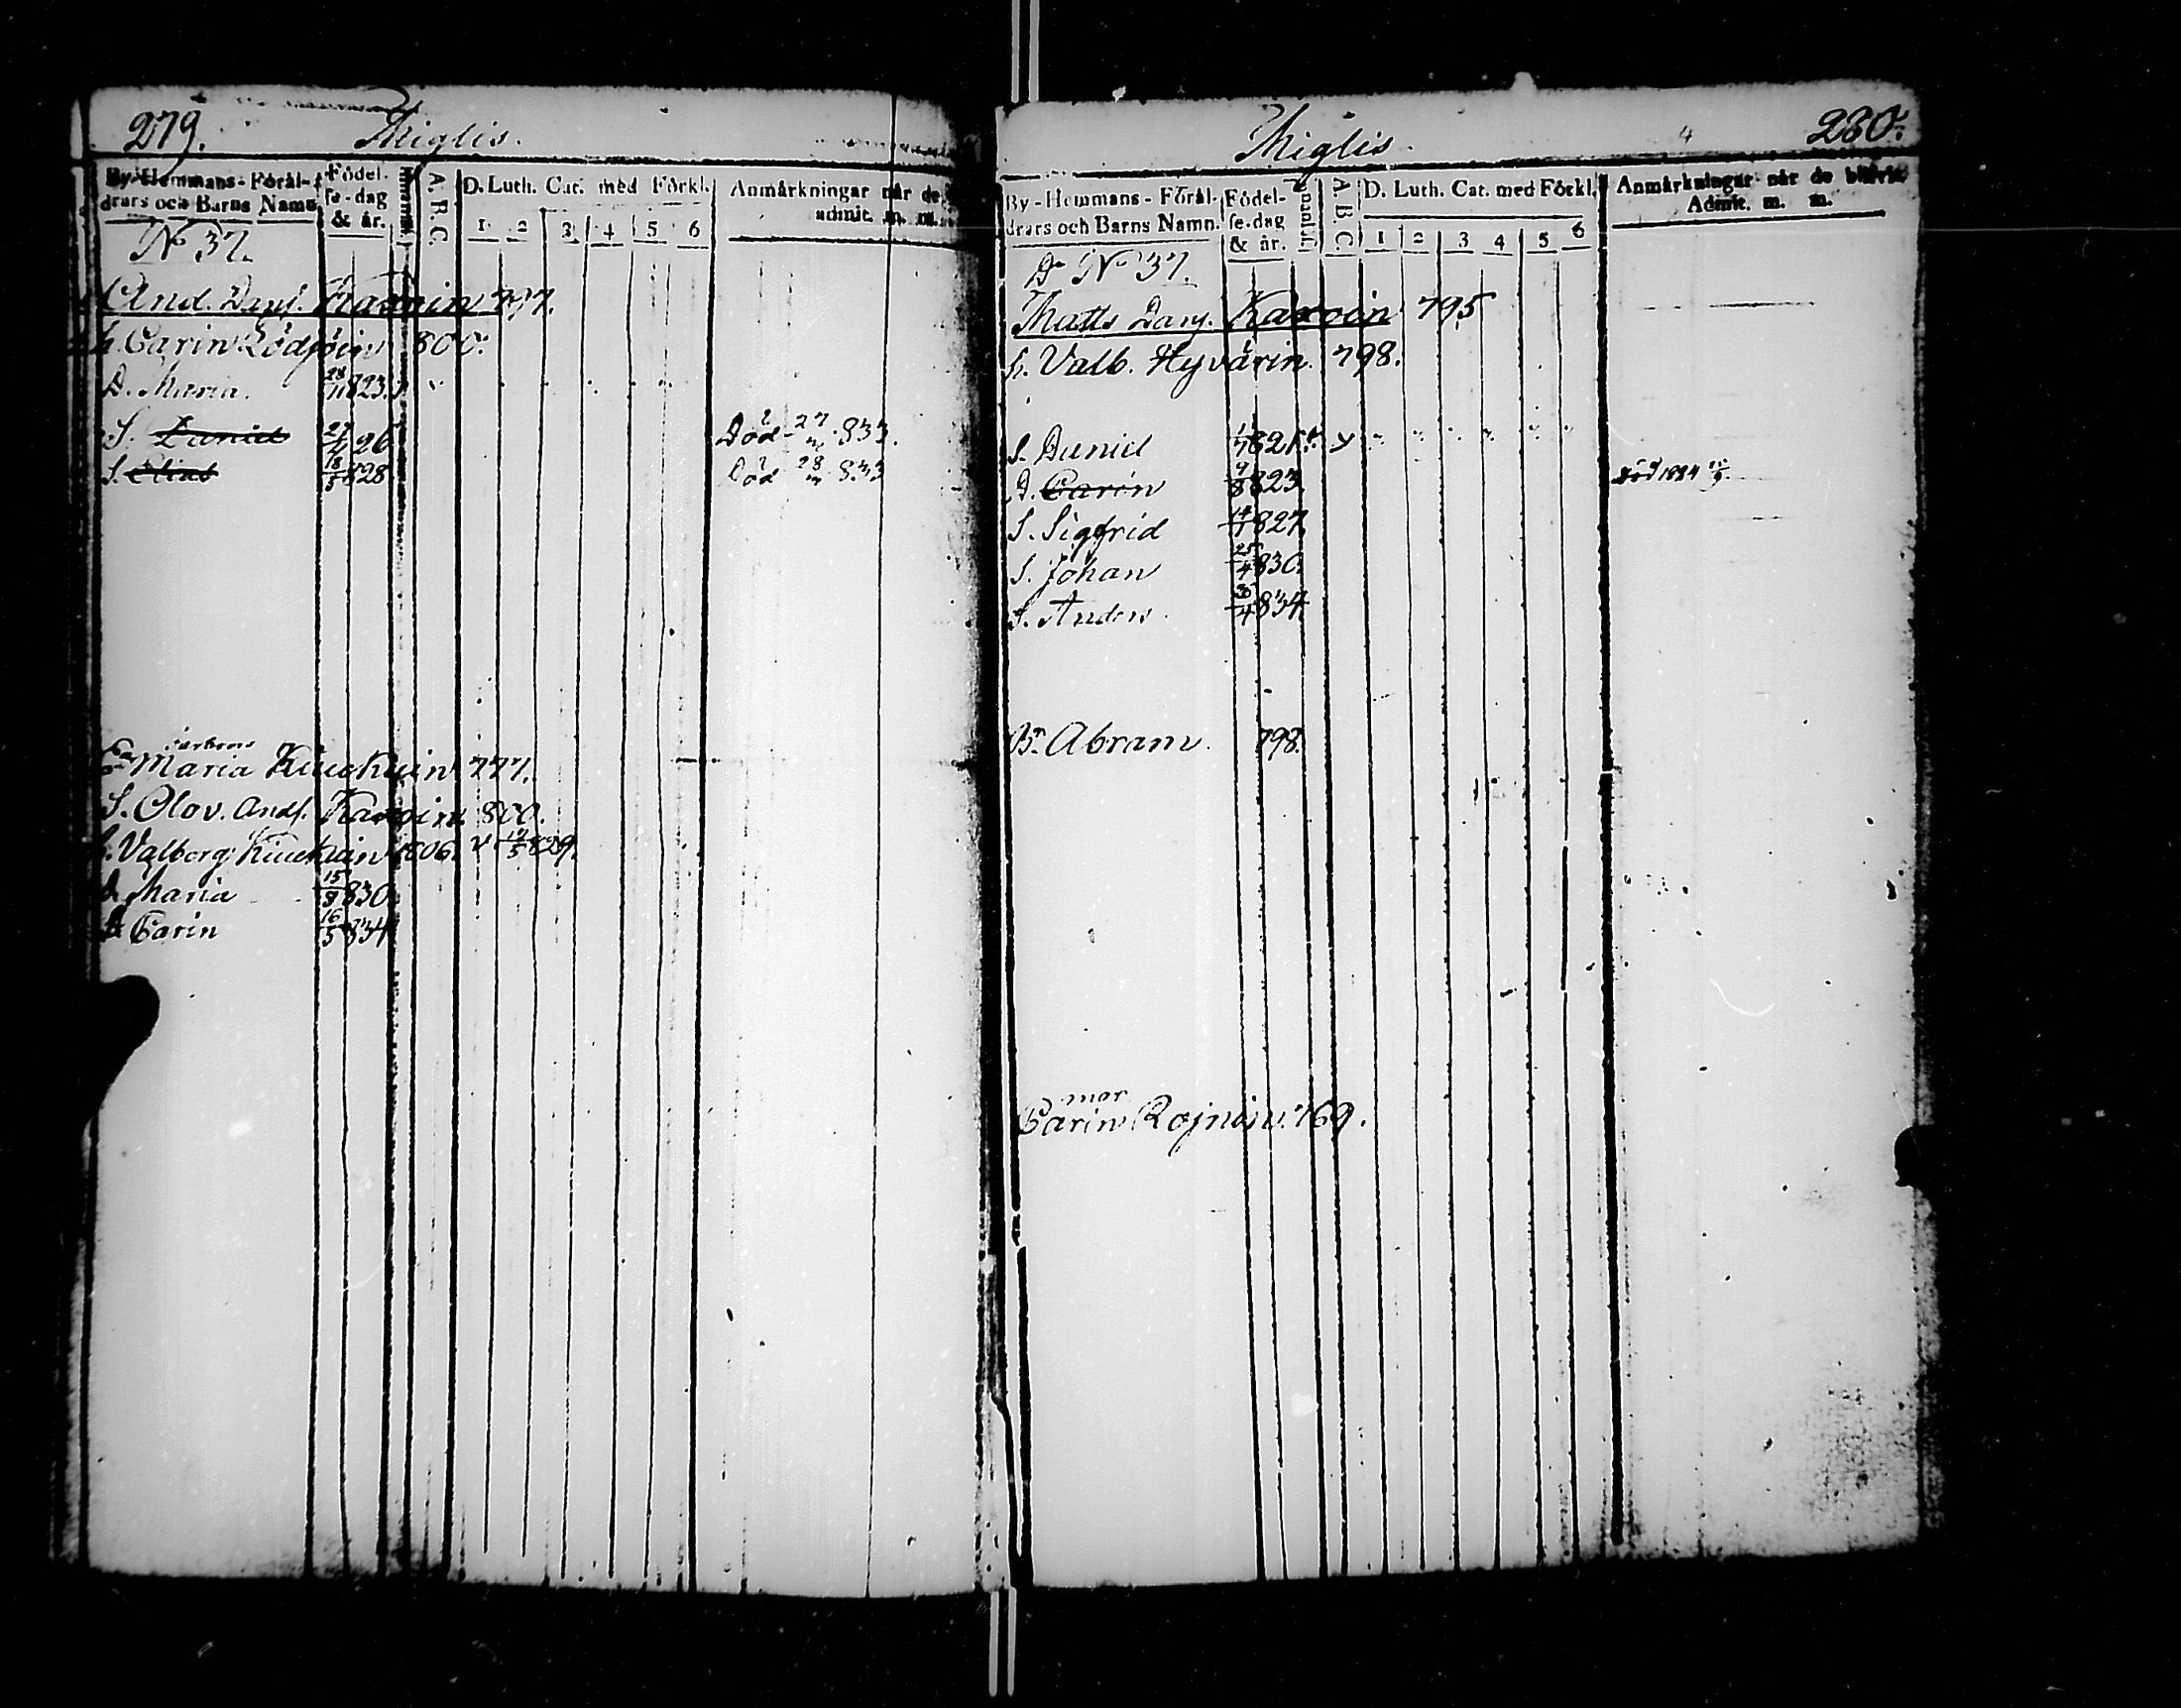 279. Miglis.
By-Hemmans-Föräl-
drars och Barns Namn
Födel-
se-dag
& år.
A. B. C.
D. Luth. Cat. med Förkl.
1 2 3 4 5 6
Anmärkningar när de
admit. m. m.
No 37.
And. Dans. Karvin 797.
h. Carin 800.
D. Maria. 28/11 823.
S. Daniel 26 Död 27 833.
S. Elias 18/5 828 Död 28 833
farbrors
Maria Kiuckuin 777.
S. Olov. Ands. 800.
h. Valborg Kiuckuin 806. v 5 829.
D. Maria 15/8 830.
D. Carin 16/5 834
Miglis. 4 280.
By-Hemmans-Föräl-
drars och Barns Namn.
Födel-
se-dag
& år.
A. B. C.
D. Luth. Cat. med Förkl.
1 2 3 4 5 6
Anmärkningar när de blifvit
Admit. m. m.
Do No 37.
Matts Dans. Karvoin 795
h. Valb. Hyvärin. 798.
S. Daniel 821.
D. Carin 9/8 823. död 1834
S. Sigfrid 827.
S. Johan 25/4 830.
S. Anders. 30/4 834.
Br. Abram. 798.
mor
Carin 769.